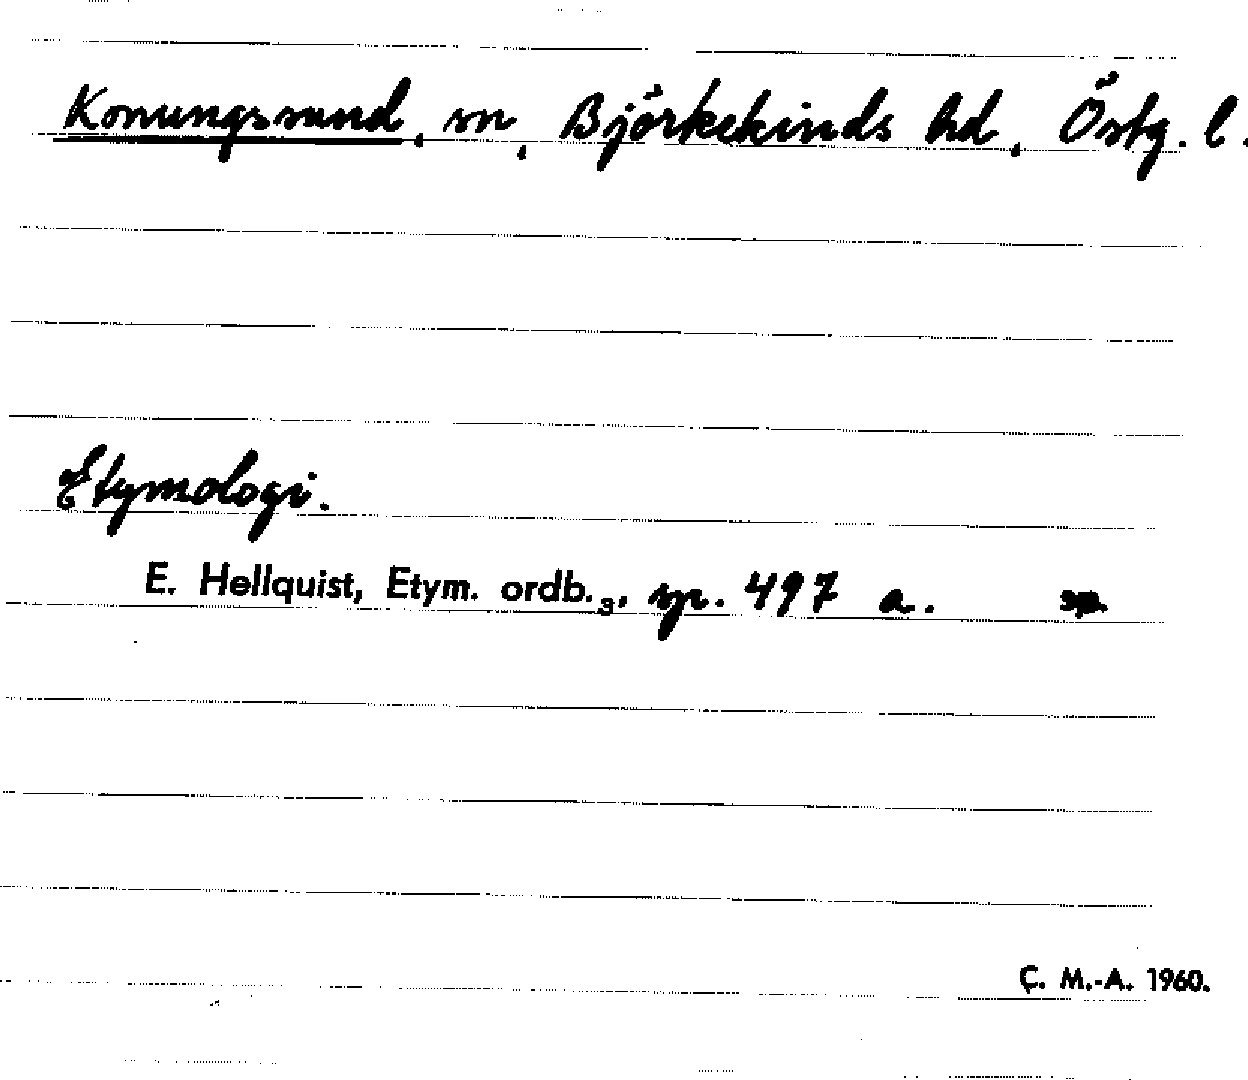 Konungssund, sn, Björkekinds hd, Östg. l.
Etymologi.
E. Hellquist, Etym. ordb.₃, sp. 497 a.
C. M.-A. 1960.